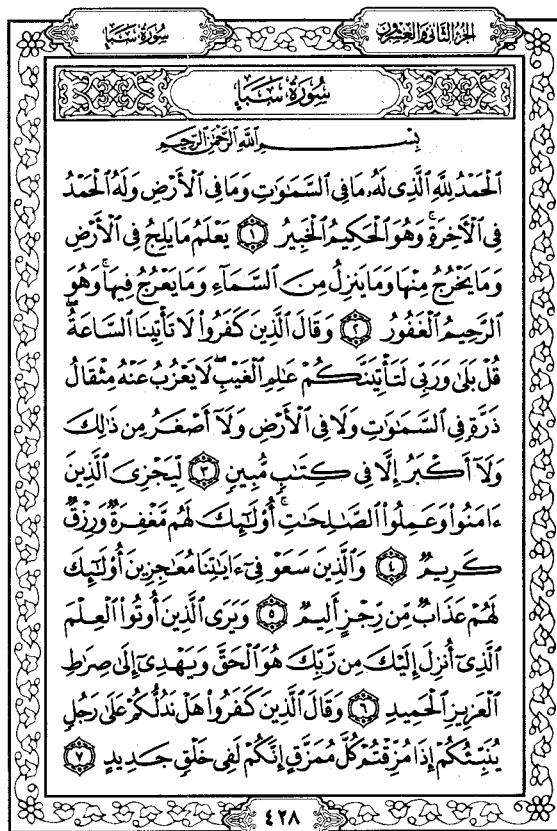 سُورَةُ سَبَإٍ الجُزْءُ الثَّانِي وَالعِشْرُونَ
سُورَةُ سَبَإٍ
بِسْمِ اللَّهِ الرَّحْمَٰنِ الرَّحِيمِ
ٱلْحَمْدُ لِلَّهِ ٱلَّذِى لَهُۥ مَا فِى ٱلسَّمَٰوَٰتِ وَمَا فِى ٱلْأَرْضِ وَلَهُ ٱلْحَمْدُ
فِى ٱلْءَاخِرَةِۚ وَهُوَ ٱلْحَكِيمُ ٱلْخَبِيرُ ١ يَعْلَمُ مَا يَلِجُ فِى ٱلْأَرْضِ
وَمَا يَخْرُجُ مِنْهَا وَمَا يَنزِلُ مِنَ ٱلسَّمَآءِ وَمَا يَعْرُجُ فِيهَاۚ وَهُوَ
ٱلرَّحِيمُ ٱلْغَفُورُ ٢ وَقَالَ ٱلَّذِينَ كَفَرُوا۟ لَا تَأْتِينَا ٱلسَّاعَةُۖ
قُلْ بَلَىٰ وَرَبِّى لَتَأْتِيَنَّكُمْ عَٰلِمِ ٱلْغَيْبِۖ لَا يَعْزُبُ عَنْهُ مِثْقَالُ
ذَرَّةٍ فِى ٱلسَّمَٰوَٰتِ وَلَا فِى ٱلْأَرْضِ وَلَآ أَصْغَرُ مِن ذَٰلِكَ
وَلَآ أَكْبَرُ إِلَّا فِى كِتَٰبٍ مُّبِينٍ ٣ لِّيَجْزِىَ ٱلَّذِينَ
ءَامَنُوا۟ وَعَمِلُوا۟ ٱلصَّٰلِحَٰتِۚ أُو۟لَٰٓئِكَ لَهُم مَّغْفِرَةٌ وَرِزْقٌ
كَرِيمٌ ٤ وَٱلَّذِينَ سَعَوْ فِىٓ ءَايَٰتِنَا مُعَٰجِزِينَ أُو۟لَٰٓئِكَ
لَهُمْ عَذَابٌ مِّن رِّجْزٍ أَلِيمٌ ٥ وَيَرَى ٱلَّذِينَ أُوتُوا۟ ٱلْعِلْمَ
ٱلَّذِىٓ أُنزِلَ إِلَيْكَ مِن رَّبِّكَ هُوَ ٱلْحَقَّ وَيَهْدِىٓ إِلَىٰ صِرَٰطِ
ٱلْعَزِيزِ ٱلْحَمِيدِ ٦ وَقَالَ ٱلَّذِينَ كَفَرُوا۟ هَلْ نَدُلُّكُمْ عَلَىٰ رَجُلٍ
يُنَبِّئُكُمْ إِذَا مُزِّقْتُمْ كُلَّ مُمَزَّقٍ إِنَّكُمْ لَفِى خَلْقٍ جَدِيدٍ ٧
٤٢٨